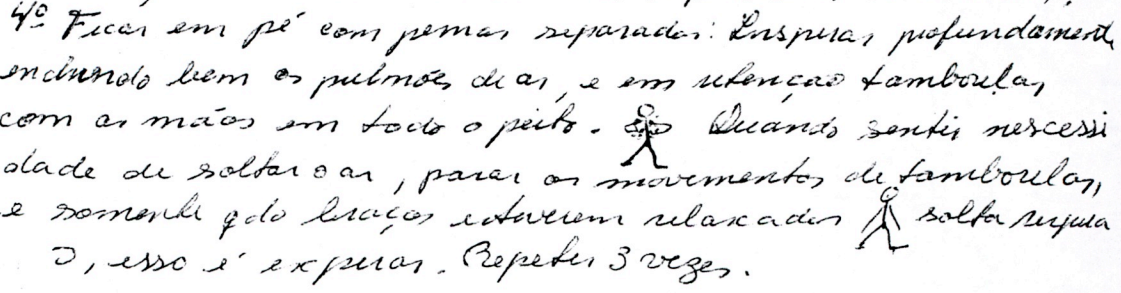 4º Ficar em pé com pernas separadas: Inspirar profundamente
enchendo bem os pulmões de ar, e em retenção tamborelar,
com as mãos em todo o peito. Quando sentir nescessi
dade de soltar o ar, parar os movimentos de tamborelar,
e somente qdo braços estiverem relaxados solta
isso é expirar. Repetir 3 vezes.